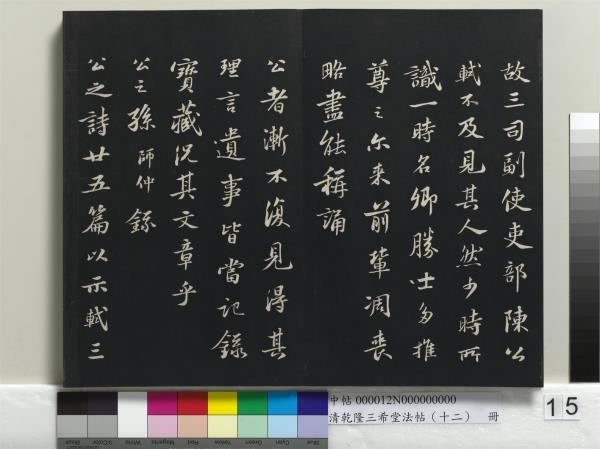 故三司副使吏部陳公
軾不及見其人然少時所
識一時名卿勝士多推
尊之尓来前輩凋喪
略盡能稱誦
公者漸不復見得其
理言遺事皆當記錄
寶藏況其文章乎
公之孫師仲錄
公之詩廿五篇以示軾三
中帖 000012N000000000
清乾隆三希堂法帖（十二） 冊
15
Blue
Cyan
Green
Yellow
Red
Magenta
White
3/Color
Black